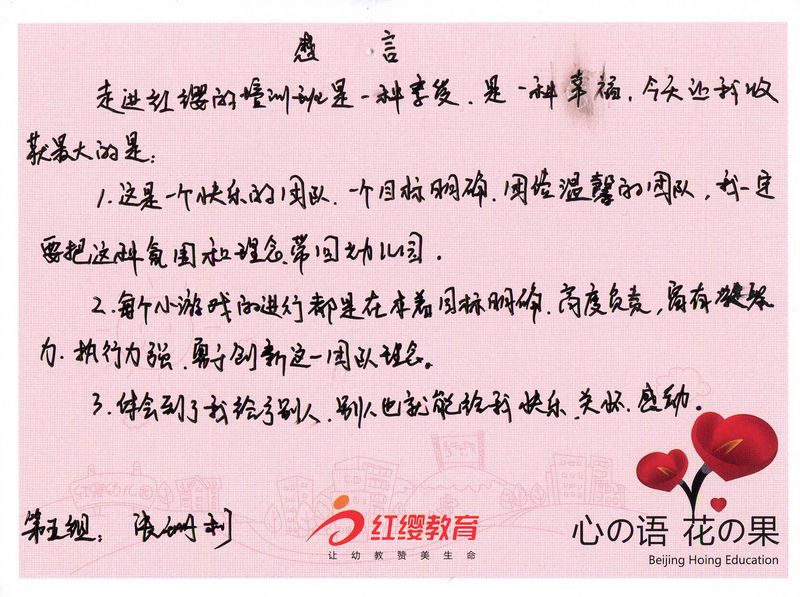 感 言
走进红缨的培训班是一种享受,是一种幸福,今天让我收
获最大的是:
1.这是一个快乐的团队、一个目标明确、团结温馨的团队,我一定
要把这种氛围和理念、带回幼儿园.
2.每个小游戏的进行都是在本着目标明确、高度负责,富有凝聚
力.执行力强、勇于创新这一团队理念。
3.体会到了我给予别人、别人也就能给我快乐、关怀、感动。
第五组: 张 利
红缨教育
让幼教赞美生命
心の语 花の果
Beijing Hoing Education
红缨幼儿园